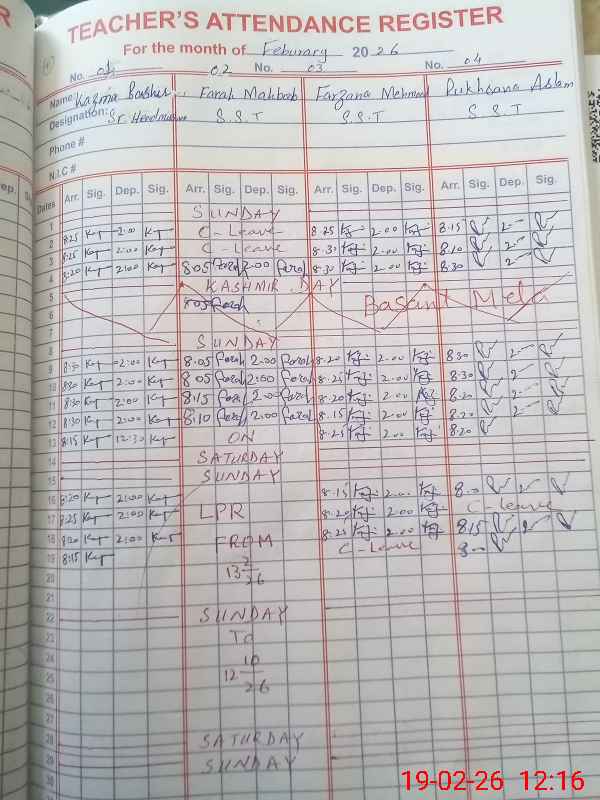 TEACHER'S ATTENDANCE REGISTER
For the month of Feburary 2026
No. 01 02 No. 03 No. 04
Name: Kazma Bashir Farah Mahboob Farzana Mehmood Rukhsana Aslam
Designation: Sr. Headmistress S.S.T S.S.T S.S.T
Phone #
N.I.C #
Dates Arr. Sig. Dep. Sig. Arr. Sig. Dep. Sig. Arr. Sig. Dep. Sig. Arr. Sig. Dep. Sig.
1 SUNDAY
2 8:25 2:00 C-Leave 8.25 2.00 8.15 2
3 8:25 2:00 C-Leave 8.30 2.00 8.10 2
4 8:20 2:00 8.05 Farah 2.00 Farah 8.30 2.00 8.30 2
5 KASHMIR DAY
6 8.05 Farah Basant Mela
7
8 SUNDAY
9 8:30 2:00 8.05 Farah 2.00 Farah 8.20 2.00 8.30 2
10 8:30 2:00 8.05 Farah 2.00 Farah 8.25 2.00 8.30 2
11 8:30 2:00 8.15 Farah 2.00 Farah 8.20 2.00 8.20 2
12 8:30 2:00 8.10 Farah 2.00 Farah 8.15 2.00 8.20 2
13 8:15 12:30 ON 8.25 2.00 8.20
14 SATURDAY
15 SUNDAY
16 8:20 2:00 8.15 2.00 2
17 8:25 2:00 LPR 8.20 2.00 C-leave
18 8:20 2:00 FROM 8.25 2.00 8.15 2
19 8:15 C-Leave 8.00
20 13 2/26
22 SUNDAY
23 To
24 12 10/26
25
26
27
28 SATURDAY
29 SUNDAY
30
19-02-26 12:16